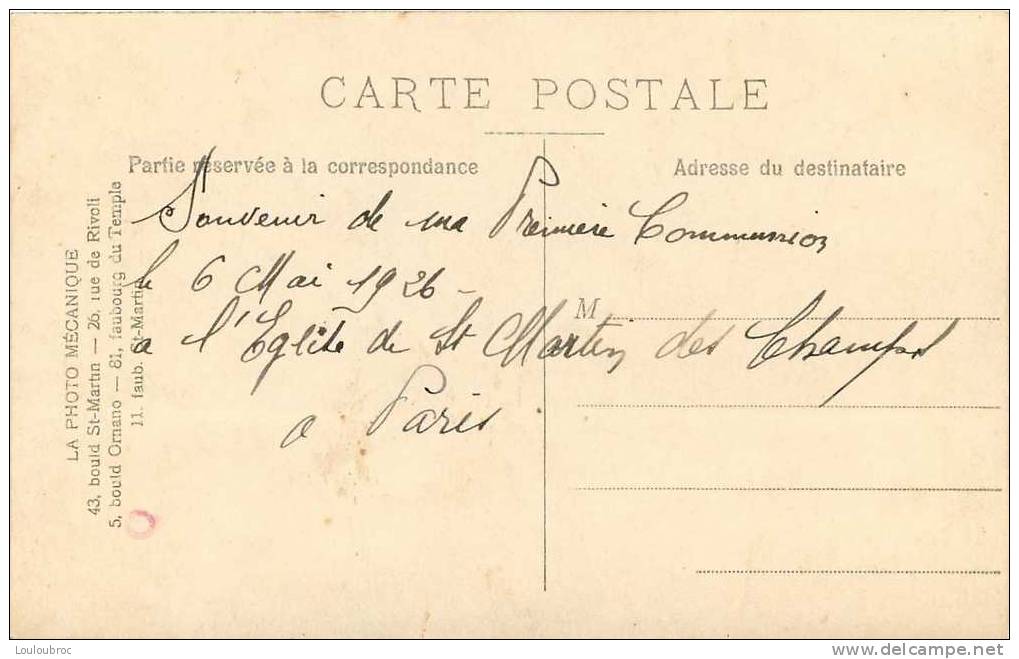 CARTE POSTALE
Partie réservée à la correspondance
Adresse du destinataire
Souvenir de ma Première Communion
le 6 Mai 1926 -
a l'Eglise de St Martin des Champs
a Paris
M
LA PHOTO MÉCANIQUE
43, bould St-Martin — 26, rue de Rivoli
5, bould Ornano — 81, faubourg du Temple
11, faub. St-Martin
Louloubroc
delcampe.net